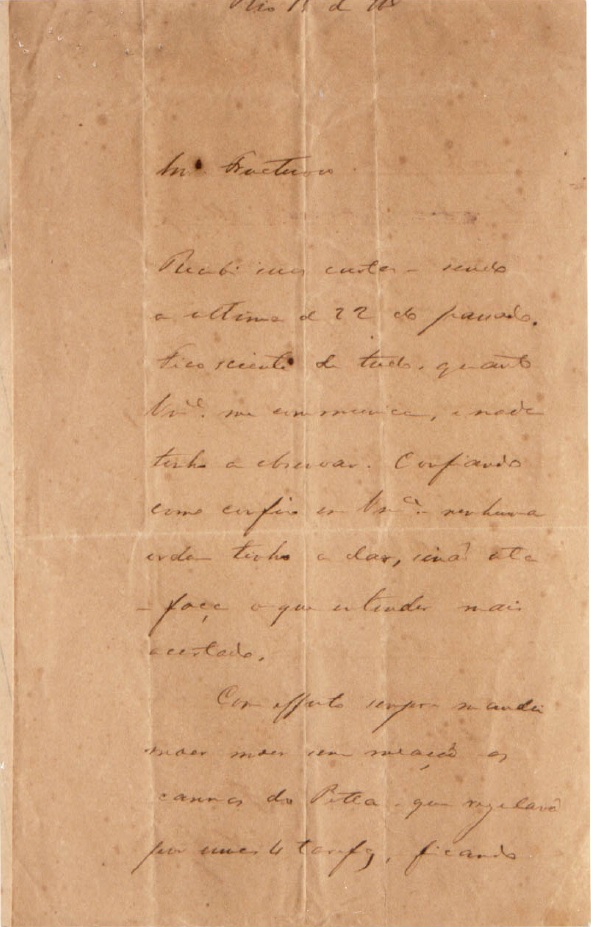 Rio 15 de
Snr. Fructuoso
Recebi suas cartas sendo
a ultima de 22 do passado.
Fico sciente de tudo, quanto
Vmce. me communica, e nada
tenho a observar. Confiando
como confio em Vmce. nenhuma
ordem tenho a dar, senão esta
- faça o que entender mais
acertado.
Com effeito sempre mandei
moer moer sem meação as
cannas do que regulavão
por umas 4 tarefas, ficando